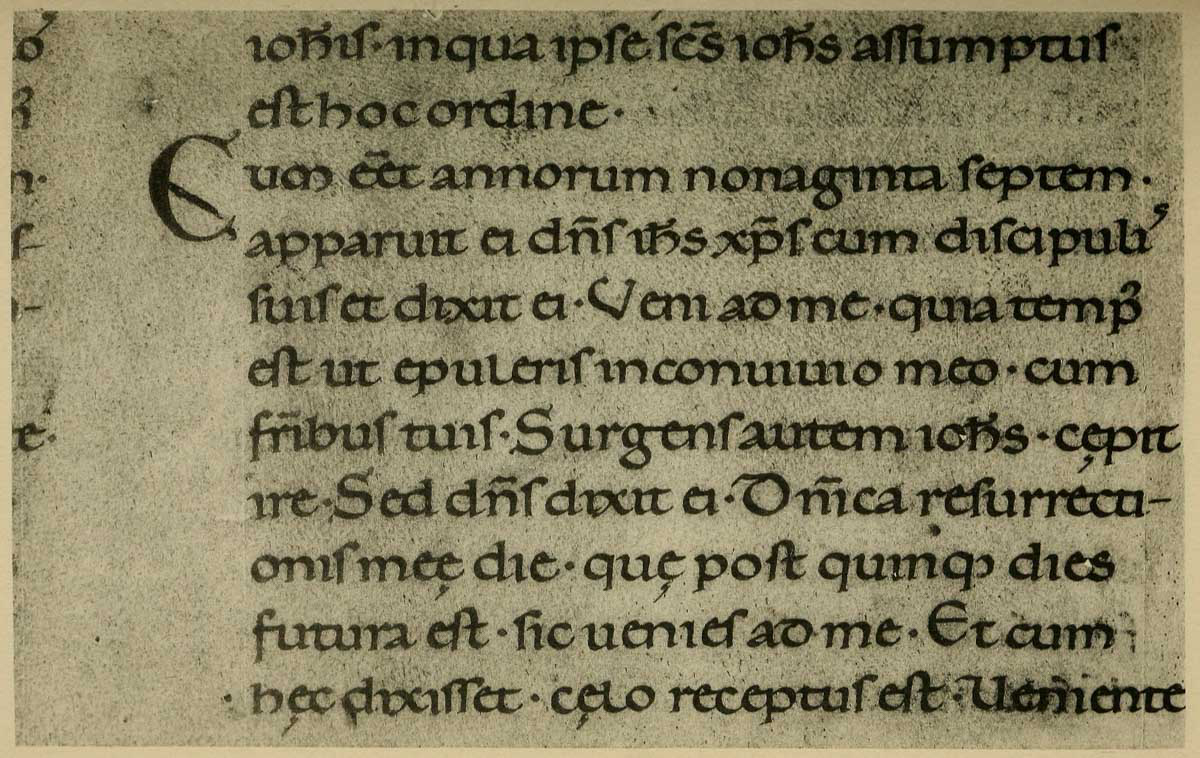 ioħis· in qua ipse sc̄s ioħs assumptus
est hoc ordine·
Cum eēt annorum nonaginta septem·
apparuit ei dn̄s iħs xp̄s cum discipuli᾽
suis et dixit ei· Veni ad me· quia temp᾽
est ut epuleris in conuiuio meo· cum
fr̄ibus tuis· Surgens autem ioħs· cępit
ire· Sed dn̄s dixit ei· Dm̄ica resurrecti-
onis meę die· quę post quinq᾽ dies
futura est· sic uenies ad me· Et cum
hęc dixisset· cęlo receptus est· Ueniente